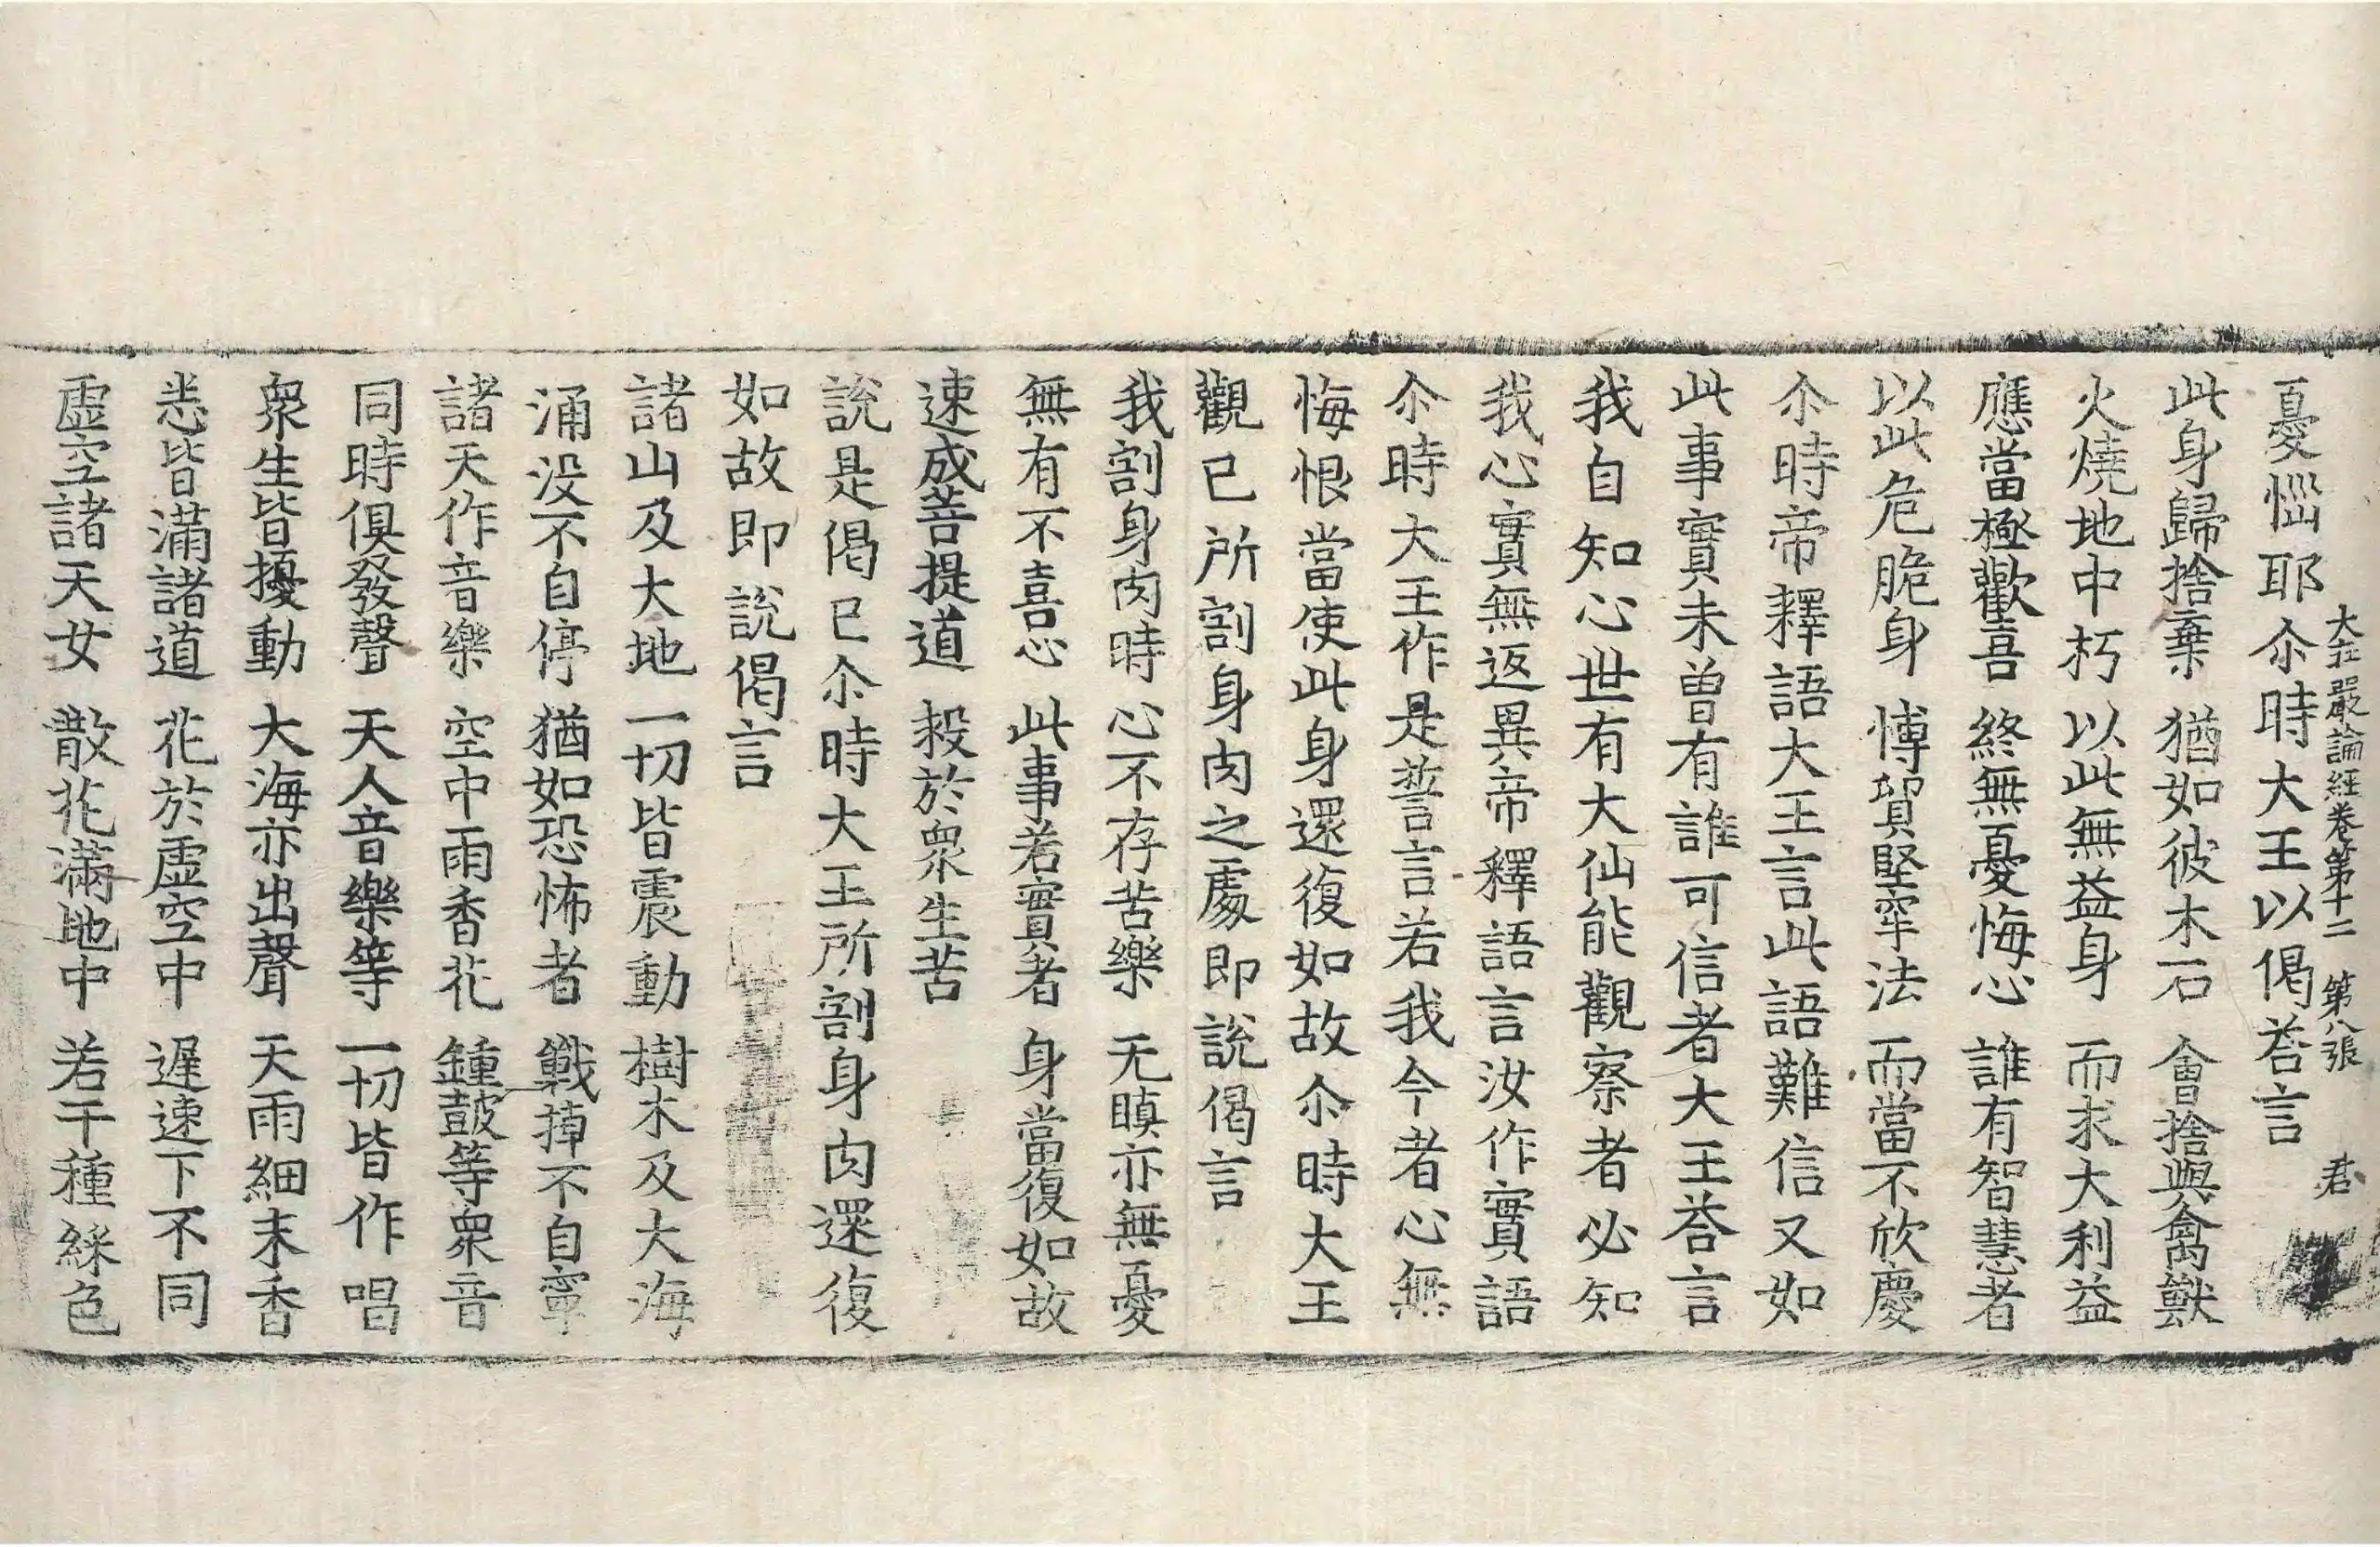 大在嚴論経卷第十二 第八張 君
憂惱耶尒時大王以偈荅言
此身歸捨棄 猶如彼木石 會捨與禽獸
火燒地中朽 以此無益身 而求大利益
應當極歡喜 終無憂悔心 誰有智慧者
以此危脆身 博貿堅牢法 而當不欣慶
尒時帝釋語大王言此語難信又如
此事實未曾有誰可信者大王荅言
我自知心世有大仙能觀察者必知
我心實無返異帝釋語言汝作實語
尒時大王作是誓言若我今者心無
悔恨當使此身還復如故尒時大王
觀已所割身肉之處即說偈言
我割身肉時 心不存苦樂 无瞋亦無憂
無有不喜心 此事若實者 身當復如故
速成菩提道 㪅於衆生苦
說是偈已尒時大王所割身肉還復
如故即說偈言
諸山及大地 一切皆震動 樹木及大海
涌没不自停 猶如恐怖者 戰掉不自寧
諸天作音樂 空中雨香花 鍾鼓等衆音
同時俱發聲 天人音樂等 一切皆作唱
衆生皆擾動 大海亦出聲 天雨細末香
悉皆滿諸道 花於虛空中 遲速下不同
虛空諸天女 散花滿地中 若干種綵色